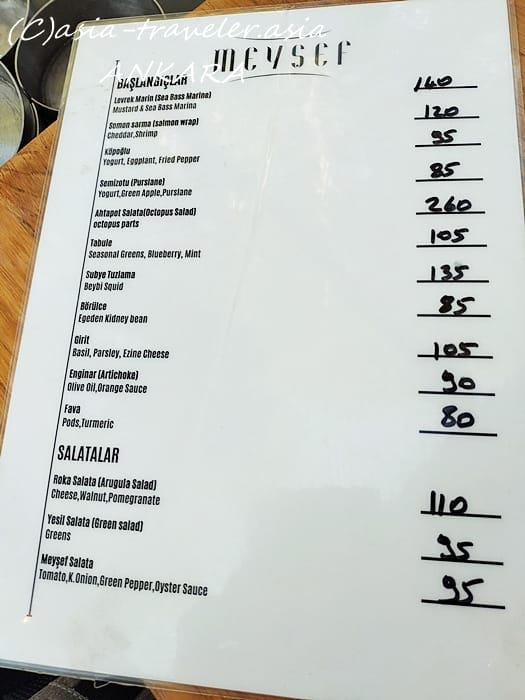 (C)asia-traveler.asia
ANKARA
MEYSEF
BAŞLANGIÇLAR
Levrek Marin (Sea Bass Marine) 140
Mustard & Sea Bass Marina
Somon sarma (salmon wrap) 120
Cheddar,Shrimp
Köpoğlu 95
Yogurt, Eggplant, Fried Pepper
Semizotu (Purslane) 85
Yogurt,Green Apple,Purslane
Ahtapot Salata(Octopus Salad) 260
octopus parts
Tabule 105
Seasonal Greens, Blueberry, Mint
Subye Tuzlama 135
Beybi Squid
Börülce 85
Egeden Kidney bean
Girit 105
Basil, Parsley, Ezine Cheese
Enginar (Artichoke) 90
Olive Oil,Orange Sauce
Fava 80
Pods,Turmeric
SALATALAR
Roka Salata (Arugula Salad) 110
Cheese,Walnut,Pomegranate
Yesil Salata (Green salad) 95
Greens
Meyşef Salata 95
Tomato,K.Onion,Green Pepper,Oyster Sauce